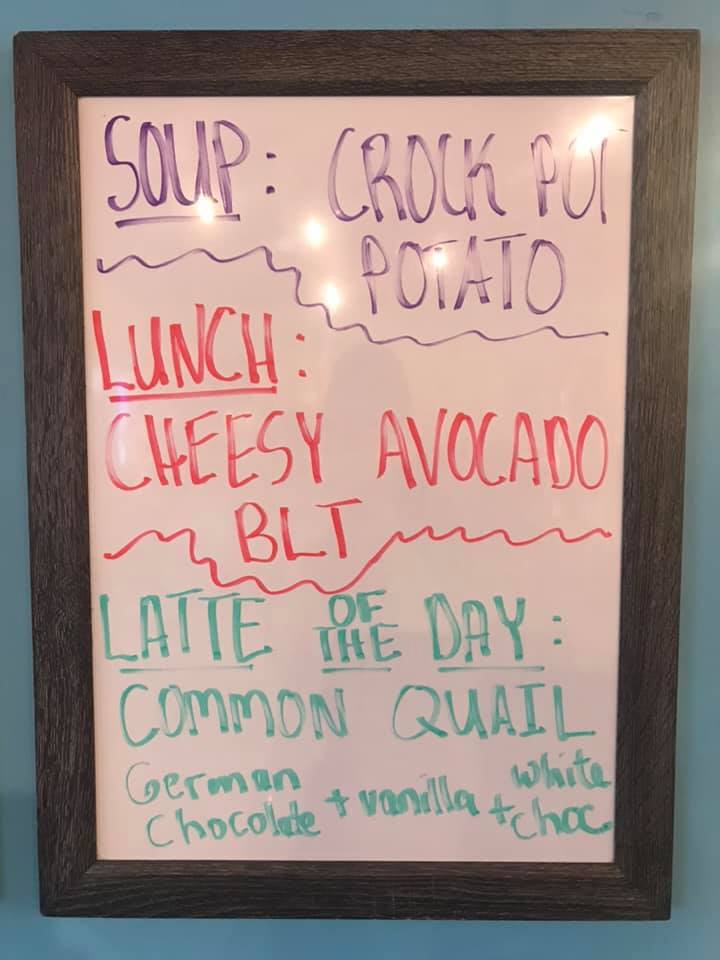 SOUP: CROCK POT
POTATO
LUNCH:
CHEESY AVOCADO
BLT
LATTE OF THE DAY:
COMMON QUAIL
German Chocolate + vanilla + white choc